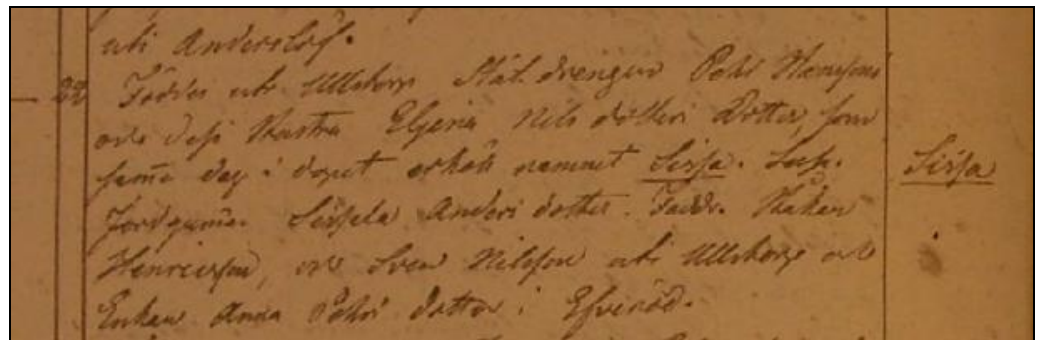 uti Anderslöf.
22 Föddes uti Ullstorp Stat drengen Pehr Hanssons
och dess Hustru Eljena Nils dotters Dotter, som
samma dag i dopet erhöll namnet Sissa. Susc. Sissa
Jordgumman Sissela Anders dotter. Faddr. Håkan
Henricsson, och Sven Nilsson uti Ullstorp och
Enkan Anna Pehrs dotter i Esperöd.